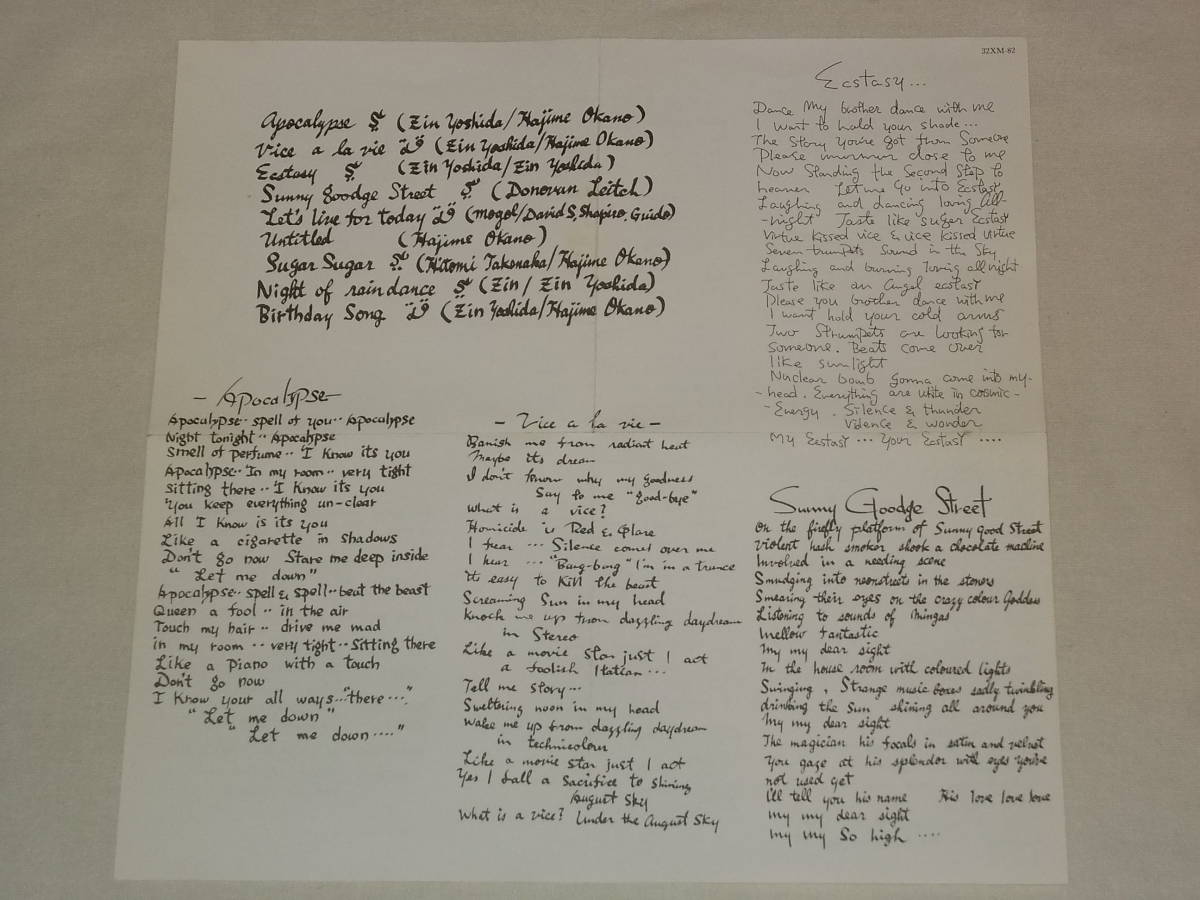 32XM-82
Apocalypse (Zin Yoshida/Hajime Okano)
Vice a la vie (Zin Yoshida/Hajime Okano)
Ecstasy (Zin Yoshida/Zin Yoshida)
Sunny Goodge Street (Donovan Leitch)
Let's live for today (Mogol/David S, Shapiro, Guido)
Untitled (Hajime Okano)
Sugar Sugar (Hitomi Takenaka/Hajime Okano)
Night of raindance (Zin/Zin Yoshida)
Birthday Song (Zin Yoshida/Hajime Okano)
Ecstasy...
Dance My brother dance with me
I want to hold your shade...
The Story You've got from Someone
Please murmur close to me
Now Standing the Second Step to
heaven Let me Go into Ecstasy
Laughing and dancing loving All-
-night Taste like sugar Ecstasy
Virtue kissed vice & vice kissed virtue
Seven trumpets Sound in the Sky
Laughing and burning loving all night
Taste like an Angel ecstasy
Please you brother dance with me
I want hold your cold arms
Two Strumpets are looking for
Someone. Beats come over
like sunlight
Nuclear bomb gonna come into my-
-head. Everything are white in cosmic-
-Energy. Silence & thunder
Vidence & wonder
My Ecstasy... Your Ecstasy ....
- Apocalypse -
Apocalypse.. spell of you.. Apocalypse
Night tonight.. Apocalypse
Smell of perfume.. I know its you
Apocalypse.. In my room.. very tight
Sitting there.. I know its you
You keep everything un-clear
All I know is its you
Like a cigarette in shadows
Don't go now Stare me deep inside
"Let me down"
Apocalypse.. spell & spell.. beat the beast
Queen a fool.. in the air
Touch my hair.. drive me mad
in my room.. very tight.. Sitting there
Like a piano with a touch
Don't go now
I know your all ways..."there...."
"Let me down"
"Let me down...."
- Vice a la vie -
Banish me from radiant heat
Maybe its dream
I don't know why my goodness
Say to me "good-bye"
What is a vice?
Homicide is Red & Glare
I fear ... Silence comes over me
I hear ... "Bang-bang" I'm in a trance
its easy to kill the beast
Screaming Sun in my head
Knock me up from dazzling daydream
in Stereo
Like a movie star just I act
a foolish Italian...
Tell me story...
Sweltering noon in my head
Wake me up from dazzling daydream
in technicolour
Like a movie star just I act
Yes I fall a sacrifice to shining
August Sky
What is a vice? Under the August Sky
Sunny Goodge Street
On the firefly platform of Sunny Good Street
Violent hash smoker shook a chocolate machine
Involved in a needing scene
Smudging into neonstreets in the stoners
Smearing their eyes on the crazy colour Goddess
Listening to sounds of mingas
mellow fantastic
My my dear sight
In the house room with coloured lights
Swinging, Strange music boxes sadly twinkling
drinking the Sun shining all around you
My my dear sight
The magician his focals in satin and velvet
You gaze at his splendor with eyes you've
not used yet
I'll tell you his name His love love love
my my dear sight
my my So high ....